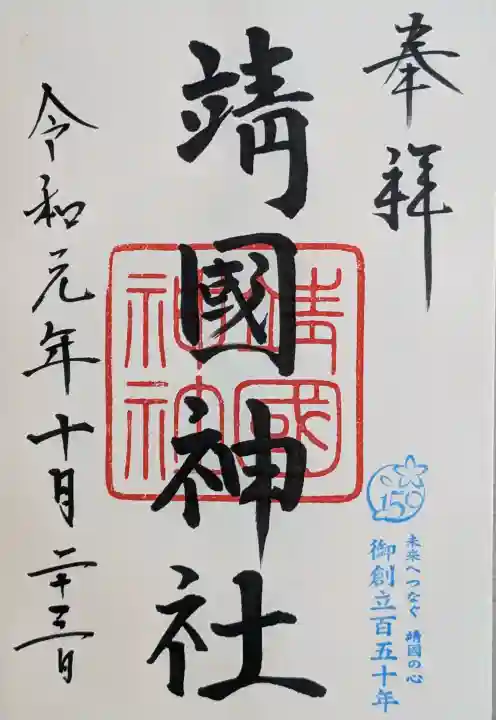 奉拝
靖國神社
靖國
神社
令和元年十月二十三日
150
未来へつなぐ 靖國の心
御創立百五十年